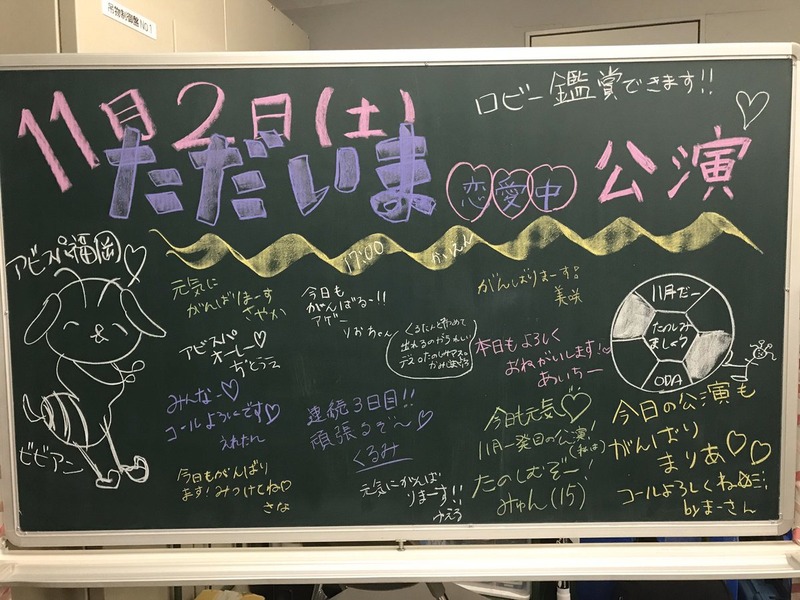 吊物制御盤 No 1
11月2日(土)
ロビー鑑賞できます!!
ただいま 恋愛中 公演
17:00 かいえん
アビスパ福岡♡
ビビアン
元気に
がんばりまーす
さやか
アビスパ
オーレー♡
みんなー♡
コールよろしくです♡
えれたん
今日もがんばり
ます!みつけてね♡
さな
今日も
がんばるー!!
アゲー
りおちゃん
連続3日目!!
頑張るぞ〜♡
くるみ
元気にがんば
りまーす!!
がんばりまーす!
美咲
くるたんと初めて
出れるのがうれしい
本日もよろしく
おねがいします!♡
あいちー
今日も元気♡
11月一発目の公演!
(私は)
たのしむぞー!
みゅん(15)
11月だー
たのしみ
ましょう
ODA
今日の公演も
がんばり
まりあ♡♡
コールよろしくね
byまーさん